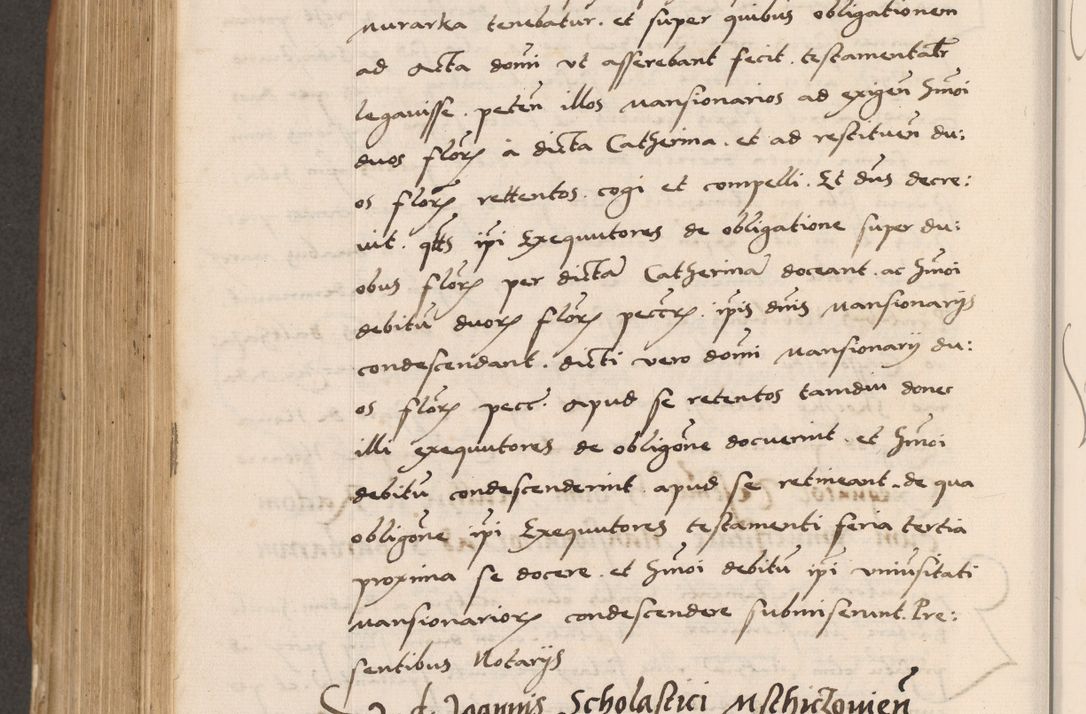 nurarka tenebatur. et super quibus obligationem
ad acta domi ut asserebant fecit. testamentalr
legauisse. peteñ illos mansionarios ad exigeñ hmoi
duos florꝝ à dicta Catherina. et ad restitueñ du:
os florꝝ rettentos. cogi et compelli. Et dñs decre:
uit. qtt͂s ipi Exequutores de obligatione super du:
obus florꝝ per dictā Catherinā doceant. ac hmoi
debitū duorꝝ florꝝ peccrꝝ. ipis dnis mansionarijs
condescendant. dicti vero domi mansionarij du:
os florꝝ pecc. apud se retentos tamdiu donec
illi exequutores de obligõne docuerint. et hmoi
debitū condescenderint. apud se retineant. de qua
obligõne ipi Exequutores testamenti feria tertia
proxima se docere. et hmoi debitū ipi uniusitati
mansionariorꝝ condescendere submiserunt. Pre:
sentibus Notarijs
Joannis Scholastici